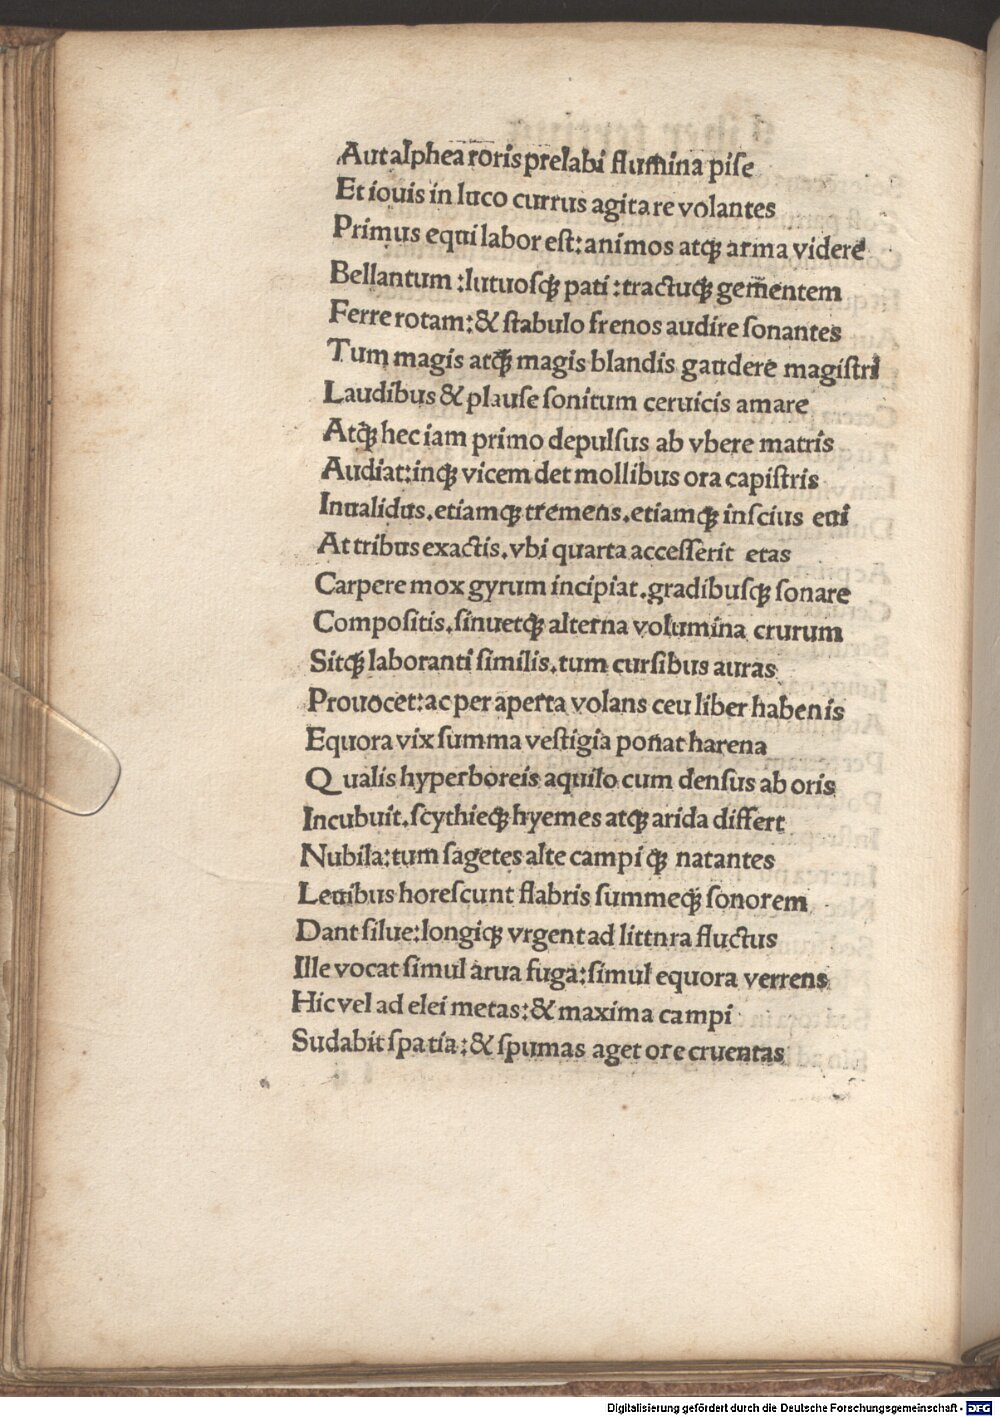 Aut alphea roris prelabi flum̄ina pise
Et iouis in luco currus agitare volantes
Primus equi labor est: animos atqꝫ arma videre
Bellantum: lutuosqꝫ pati: tractuqꝫ gem̄entem
Ferre rotam: & stabulo frenos audire sonantes
Tum magis atqꝫ magis blandis gaudere magistri
Laudibus & plause sonitum ceruicis amare
Atqꝫ hec iam primo depulsus ab vbere matris
Audiat: inqꝫ vicem det mollibus ora capistris
Inualidus. etiamqꝫ tremens. etiamqꝫ inscius eui
At tribus exactis. vbi quarta accesserit etas
Carpere mox gyrum incipiat. gradibusqꝫ sonare
Compositis. sinuetqꝫ alterna volumina crurum
Sitqꝫ laboranti similis. tum cursibus auras
Prouocet: ac per aperta volans ceu liber habenis
Equora vix summa vestigia ponat harena
Qualis hyperboreis aquilo cum densus ab oris
Incubuit. scythieqꝫ hyemes atqꝫ arida differt
Nubila: tum sagetes alte campiqꝫ natantes
Leuibus horescunt flabris summeqꝫ sonorem
Dant silue: longiqꝫ vrgent ad littnra fluctus
Ille vocat simul arua fuga: simul equora verrens
Hic vel ad elei metas: & maxima campi
Sudabit spatia: & spumas aget ore cruentas
Digitalisierung gefördert durch die Deutsche Forschungsgemeinschaft - DFG